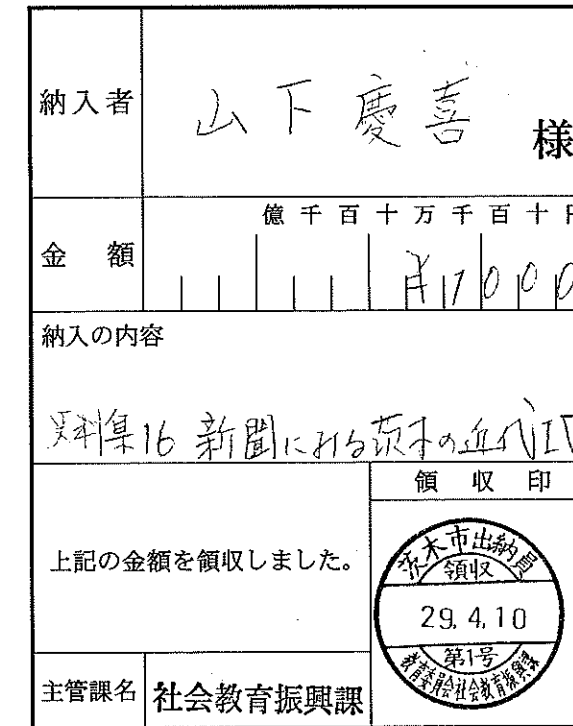 納入者 山下慶喜 様
億千百十万千百十円
金額 ¥1000
納入の内容
史料集16 新聞にみる茨木の近代IV
領収印
上記の金額を領収しました。
茨木市出納員
領収
29.4.10
第1号
教育委員会社会教育振興課
主管課名 社会教育振興課